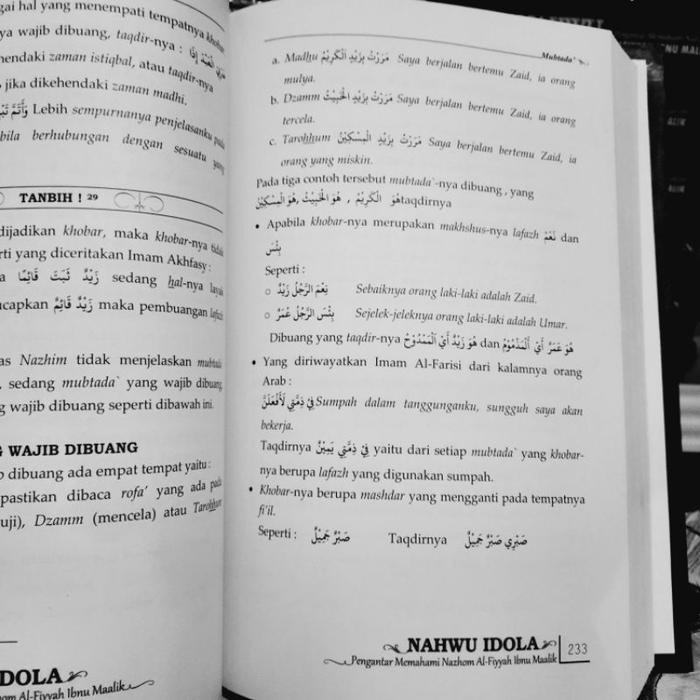 gai hal yang menempati tempatnya khobar
ya wajib dibuang, taqdir-nya :
hendaki zaman istiqbal, atau taqdir-nya
jika dikehendaki zaman madhi.
Lebih sempurnanya penjelasanku pada
bila berhubungan dengan sesuatu yang
TANBIH ! 29
dijadikan khobar, maka khobar-nya tidak
rti yang diceritakan Imam Akhfasy :
a زَيْدٌ ثَبَتَ قَائِمًا sedang hal-nya layak
ucapkan زَيْدٌ قَائِمٌ maka pembuangan lafazh
as Nazhim tidak menjelaskan mubtada
, sedang mubtada` yang wajib dibuang
g wajib dibuang seperti dibawah ini.
G WAJIB DIBUANG
b dibuang ada empat tempat yaitu :
pastikan dibaca rofa' yang ada pada
uji), Dzamm (mencela) atau Tarohhum
DOLA
om Al-Fiyyah Ibnu Maalik
Mubtada`
a. Madhu مَرَرْتُ بِزَيْدٍ الْكَرِيْمُ Saya berjalan bertemu Zaid, ia orang
mulya.
b. Dzamm مَرَرْتُ بِزَيْدٍ الْخَبِيْثُ Saya berjalan bertemu Zaid, ia orang
tercela.
c. Tarohhum مَرَرْتُ بِزَيْدٍ الْمِسْكِيْنُ Saya berjalan bertemu Zaid, ia
orang yang miskin.
Pada tiga contoh tersebut mubtada`-nya dibuang , yang
taqdirnya هُوَ الْكَرِيْمُ , هُوَ الْخَبِيْثُ ,هُوَ الْمِسْكِيْنُ
• Apabila khobar-nya merupakan makhshus-nya lafazh نِعْمَ dan
بِئْسَ
Seperti :
○ نِعْمَ الرَّجُلُ زَيْدٌ Sebaiknya orang laki-laki adalah Zaid.
○ بِئْسَ الرَّجُلُ عُمَرُ Sejelek-jeleknya orang laki-laki adalah Umar.
Dibuang yang taqdir-nya هُوَ زَيْدٌ أَيْ الْمَمْدُوْحُ dan هُوَ عُمَرُ أَيْ الْمَذْمُوْمُ
• Yang diriwayatkan Imam Al-Farisi dari kalamnya orang
Arab :
فِيْ ذِمَّتِي لَأَفْعَلَنَّ Sumpah dalam tanggunganku, sungguh saya akan
bekerja.
Taqdirnya فِيْ ذِمَّتِي يَمِيْنٌ yaitu dari setiap mubtada` yang khobar-
nya berupa lafazh yang digunakan sumpah.
• Khobar-nya berupa mashdar yang mengganti pada tempatnya
fi'il.
Seperti : صَبْرٌ جَمِيْلٌ Taqdirnya صَبْرِي صَبْرٌ جَمِيْلٌ
NAHWU IDOLA
Pengantar Memahami Nazhom Al-Fiyyah Ibnu Maalik
233